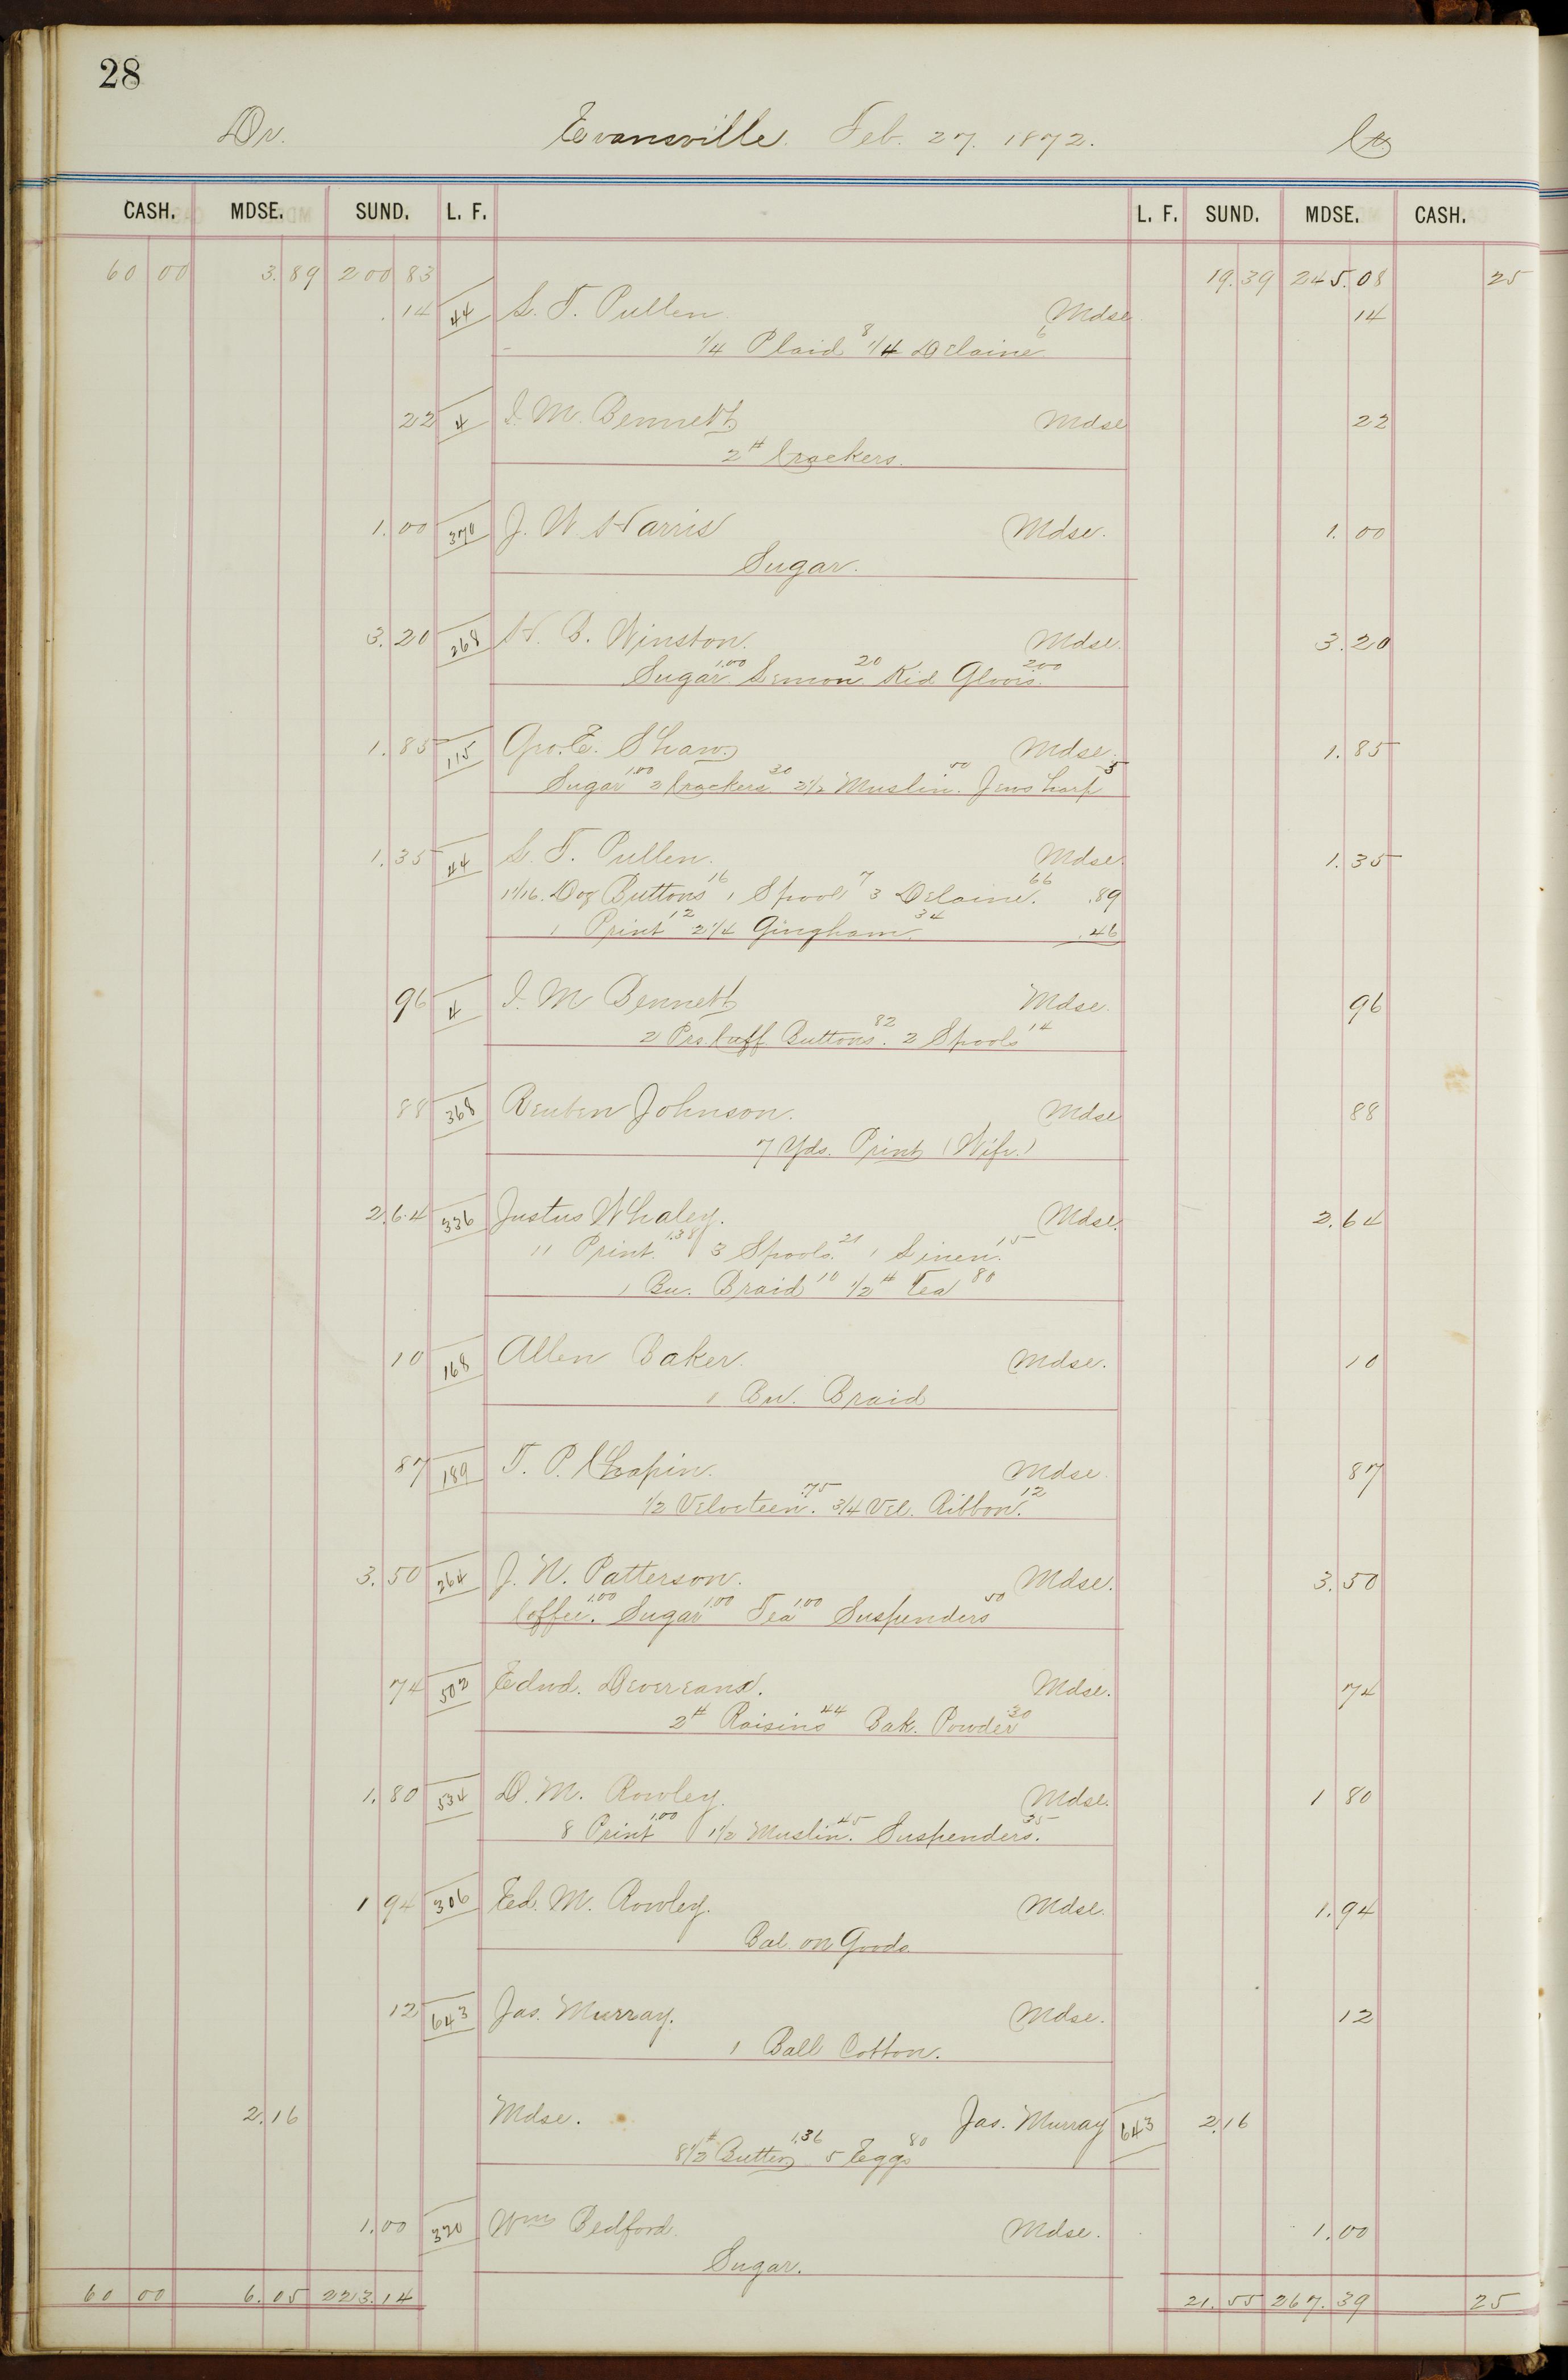 28
Dr. Evansville. Feb. 27. 1872. Cr
CASH. MDSE. SUND. L. F. L. F. SUND. MDSE. CASH.
60 00 3.89 200 83 19.39 245.08 25
.14 44 S. T. Pullen. Mdse 14
1/4 Plaid 8 1/4 Delaine 6
22 4 I. M. Bennett Mdse 22
2# Crackers.
1.00 370 J. W. Harris Mdse. 1.00
Sugar.
3.20 268 H. B. Winston. Mdse. 3.20
Sugar 1.00 Lemon 20 Kid Gloves. 2.00
1.85 115 Geo. E. Shaw. Mdse. 1.85
Sugar 1.00 2 Crackers 30 2 1/2 Muslin. 50 Jews harp 5
1.35 44 S. T. Pullen. Mdse. 1.35
1 1/16. Doz Buttons 16 1 Spool 7 3 Delaine. 66 .89
1 Print 12 2 1/4 Gingham. 34 .46
96 4 I. M Bennett Mdse. 96
2 Prs. Cuff Buttons. 82 2 Spools 14
88 368 Reuben Johnson. Mdse 88
7 Yds. Print (Wife.)
2.64 336 Justus Whaley. Mdse. 2.64
11 Print. 1.38 3 Spools. 21 1 Linen. 15
1 Bu. Braid 10 1/2# Tea 80
10 168 Allen Baker. Mdse. 10
1 Bu. Braid
87 189 T. P. Chapin. Mdse. 87
1/2 Velveteen. .75 3/4 Vel. Ribbon. 12
3.50 264 J. W. Patterson. Mdse. 3.50
Coffee. 1.00 Sugar 1.00 Tea 1.00 Suspenders 50
74 502 Edwd. Devereaux. Mdse. 74
2# Raisins 44 Bak. Powder 30
1.80 534 D. M. Rowley. Mdse. 1 80
8 Print 1.00 1 1/2 Muslin. 45 Suspenders. 35
1 94 306 Ed. M. Rowley. Mdse. 1.94
Bal. on Goods.
12 643 Jas. Murray. Mdse. 12
1 Ball Cotton.
2.16 Mdse. Jas. Murray 643 2.16
8 1/2# Butter 1.36 5 Eggs 80
1.00 320 Wm Bedford. Mdse. 1.00
Sugar.
60 00 6.05 223.14 21.55 267.39 25